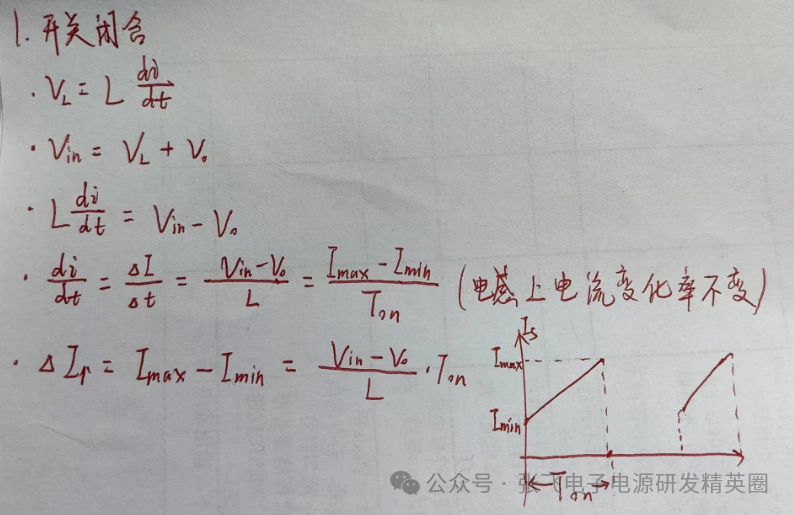 1. 开关闭合
· V_L = L di/dt
· Vin = V_L + V_o
· L di/dt = Vin - V_o
· di/dt = ΔI/Δt = (Vin - V_o)/L = (Imax - Imin)/Ton (电感上电流变化率不变)
· ΔI_r = Imax - Imin = (Vin - V_o)/L · Ton
Is
Imax
Imin
Ton
公众号 · 张飞电子电源研发精英圈